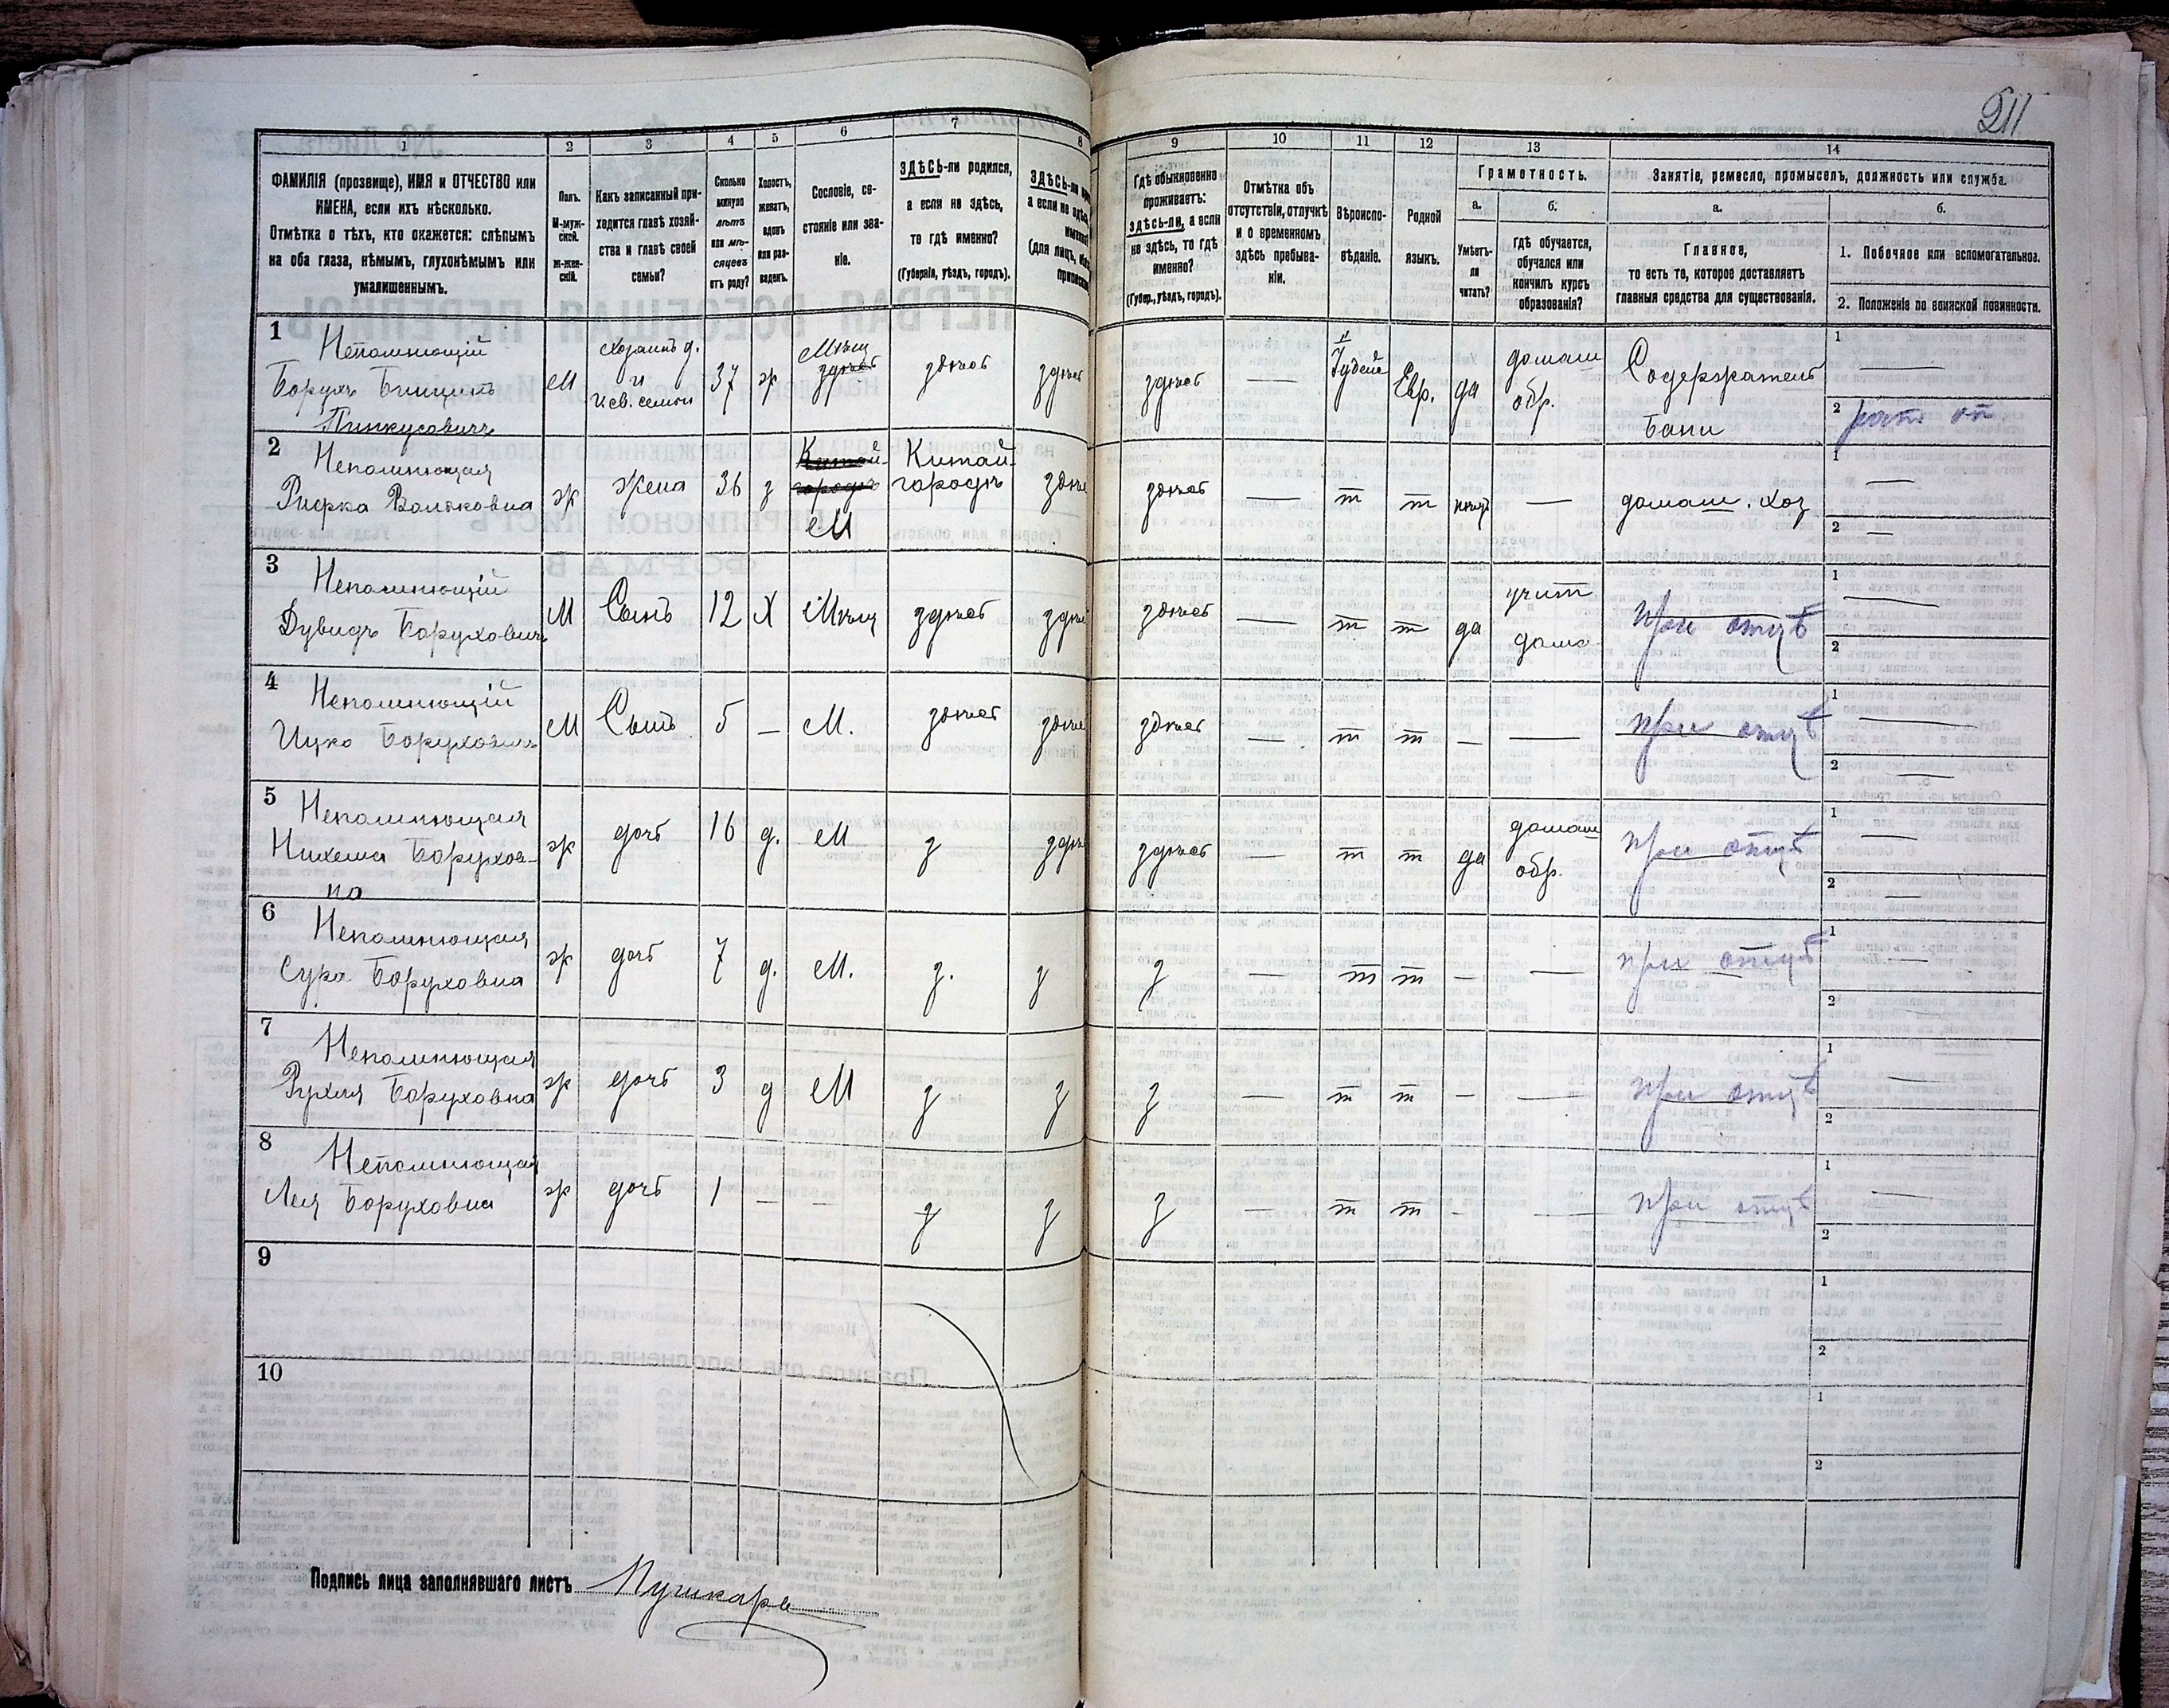 211
1
2
3
4
5
6
7
8
ФАМИЛІЯ (прозвище), ИМЯ и ОТЧЕСТВО или
ИМЕНА, если ихъ нѣсколько.
Отмѣтка о тѣхъ, кто окажется: слѣпымъ
на оба глаза, нѣмымъ, глухонѣмымъ или
умалишеннымъ.
Полъ.
М-муж-
ской.
Ж-жен-
скій.
Какъ записанный при-
ходится главѣ хозяй-
ства и главѣ своей
семьи?
Сколько
минуло
лѣтъ
или мѣ-
сяцевъ
отъ роду?
Холостъ,
женатъ,
вдовъ
или раз-
веденъ.
Сословіе, со-
стояніе или зва-
ніе.
ЗДѢСЬ-ли родился,
а если не здѣсь,
то гдѣ именно?
(Губернія, уѣздъ, городъ).
ЗДѢСЬ-ли
а если не здѣсь
9
10
11
12
13
14
Гдѣ обыкновенно
проживаетъ:
здѣсь-ли, а если
не здѣсь, то гдѣ
именно?
(Губер., уѣздъ, городъ).
Отмѣтка объ
отсутствіи, отлучкѣ
и о временномъ
здѣсь пребыва-
ніи.
Вѣроиспо-
вѣданіе.
Родной
языкъ.
Грамотность.
а.
Умѣетъ-
ли
читать?
б.
Гдѣ обучается,
обучался или
кончилъ курсъ
образованія?
Занятіе, ремесло, промыселъ, должность или служба.
а.
Главное,
то есть то, которое доставляетъ
главныя средства для существованія.
б.
1. Побочное или вспомогательное.
2. Положеніе по воинской повинности.
1
Непомнющій
Борухъ
Пинкусовичъ
М
Хозяинъ д.
и
г. св. семьи
37
ж
Мѣщ
здѣсь
здѣсь
здѣсь
здѣсь
Іудей
Евр.
да
домаш
обр.
Содержатель
бани
1
—
2
2
Непомнющая
Рифка Вольковна
ж
жена
36
з
Китай-
городъ
М
Китай-
городъ
здѣсь
здѣсь
—
т
т
—
домаш. хоз
1
—
2
—
3
Непомнющій
Дувидъ Боруховичъ
М
Сынъ
12
Х
Мѣщ
здѣсь
здѣсь
здѣсь
—
т
т
да
учит
дома
при отцѣ
1
—
2
4
Непомнющій
Ицко Боруховичъ
М
Сынъ
5
—
М.
здѣсь
здѣсь
здѣсь
—
т
т
—
—
при отцѣ
1
—
2
—
5
Непомнющая
Нихема Борухов-
на
ж
дочь
16
д.
М
з
здѣсь
здѣсь
—
т
т
да
домаш
обр.
при отцѣ
1
—
2
—
6
Непомнющая
Сура Боруховна
ж
дочь
7
д.
М.
з.
з
з
—
т
т
—
—
при отцѣ
1
—
2
—
7
Непомнющая
Рухля Боруховна
ж
дочь
3
д
М
з
з
з
—
т
т
—
—
при отцѣ
1
—
2
8
Непомнющая
Лея Боруховна
ж
дочь
1
—
—
з
з
з
—
т
т
-
—
при отцѣ
1
—
2
9
1
2
10
1
2
Подпись лица заполнявшаго листъ Пушкарь